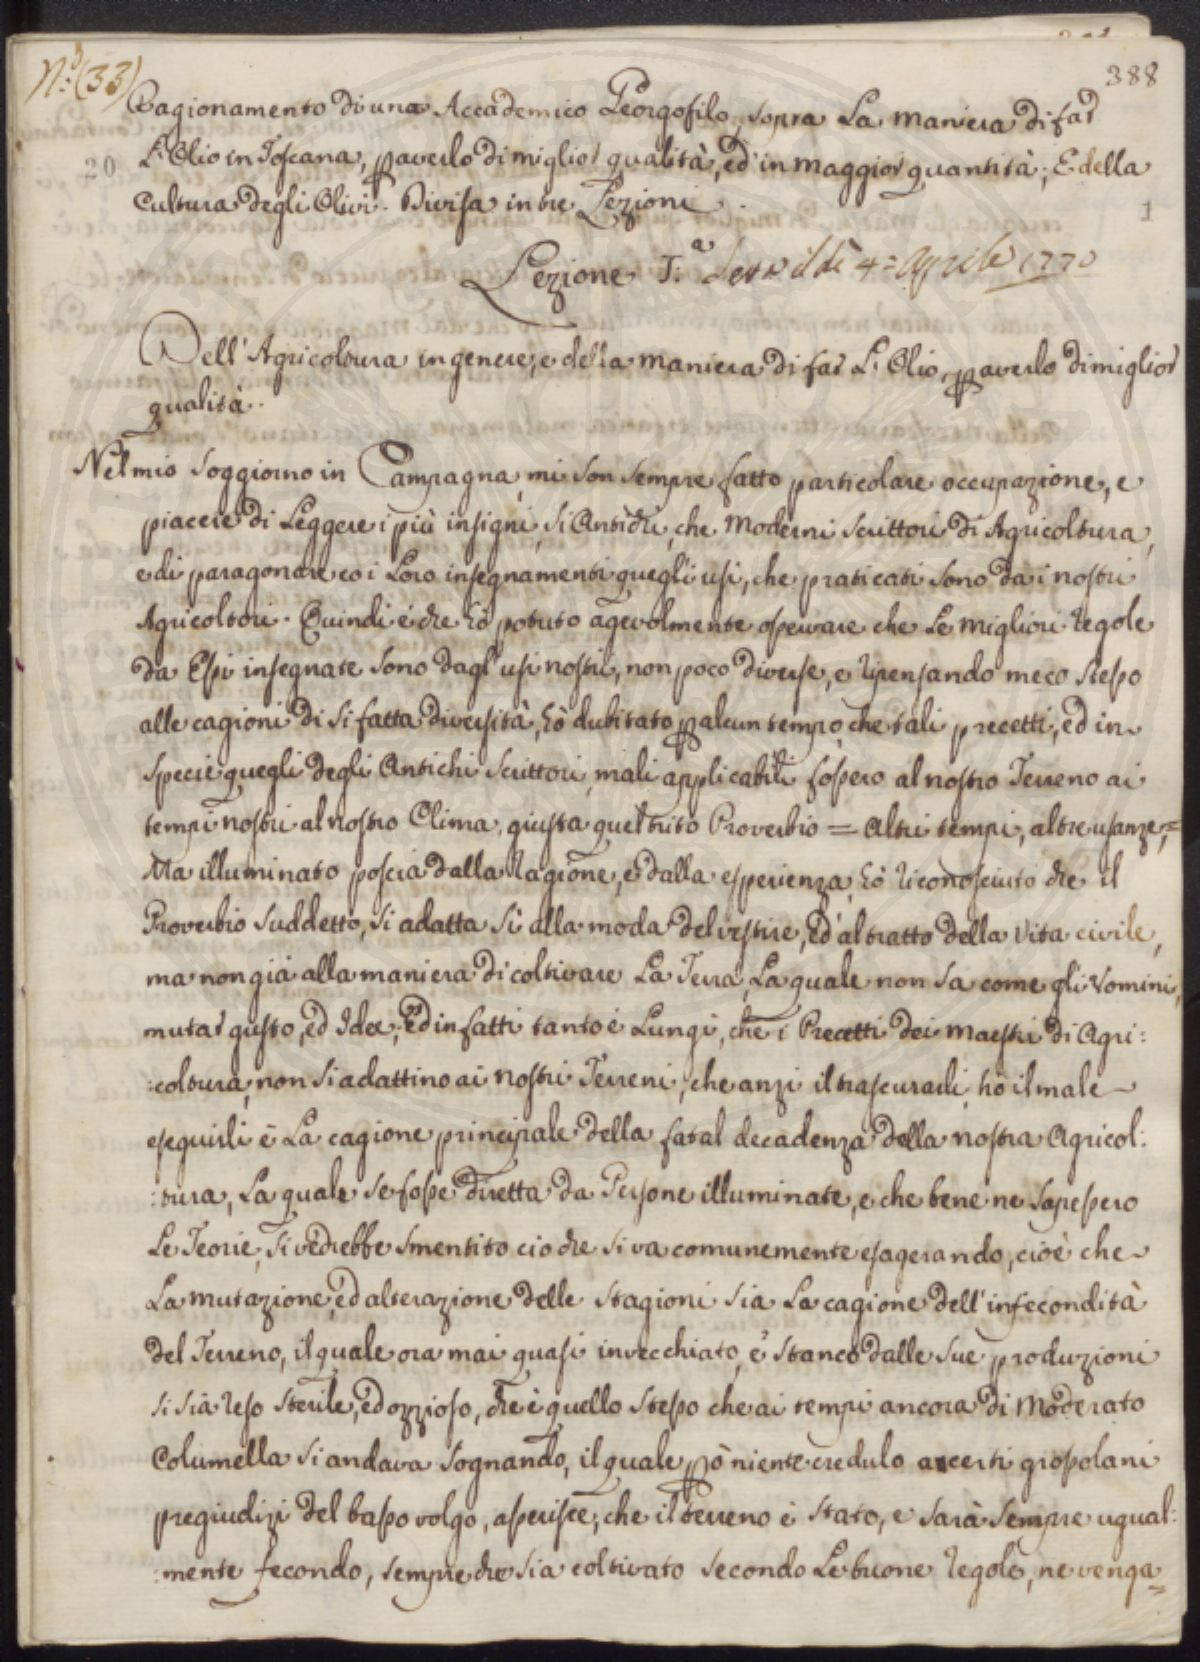 N.° (33)
388
Ragionamento di una Accademico Georgofilo, sopra La maniera di far
20
L'Olio in Toscana, p averlo di miglior qualità, ed in maggior quantità; E della
Cultura degli Olivi. Divisa in tre Lezioni.
1
Lezione I.a Letta il dì 4 = Aprile 1770
Dell'Agricoltura in genere, e della maniera di far L'Olio, p averlo di miglior
qualità.
Nel mio Soggiorno in Campagna, mi son sempre fatto particolare occupazione, e
piacere di Leggere i più insigni, si Antichi, che Moderni Scrittori di Agricoltura,
e di paragonare co i Loro insegnamenti quegli usi, che praticati sono da i nostri
Agricoltori. Quindi é che hò potuto agevolmente osservare che Le migliori regole
da Essi insegnate sono dagl'usi nostri, non poco diverse, e ripensando meco stesso
alle cagioni di si fatta diversità, hò dubitato p alcun tempo, che tali precetti, ed in
specie quegli degli Antichi Scrittori, mali applicabili fossero al nostro Terreno ai
tempi nostri al nostro Clima, giusta quel trito Proverbio = Altri tempi, altre usanze, =
Ma illuminato poscia dalla ragione, e dalla esperienza hò riconosciuto che il
Proverbio suddetto, si adatta sì alla moda del vestire, ed al tratto della Vita civile,
ma non già alla maniera di coltivare La Terra, La quale non sa come gli Vomini,
mutar gusto, ed Idea; Ed in fatti tanto é Lungi, che i Precetti dei Maestri di Agri:
:coltura, non si adattino ai nostri Terreni, che anzi il trascurarli, hò il male
eseguirli é La cagione principale della fatal decadenza della nostra Agricol:
:tura, La quale se fosse diretta da Persone illuminate, e che bene ne sapessero
Le Teorie, si vedrebbe smentito cio che si va comunemente esagerando, cioè che
La mutazione, ed alterazione delle Stagioni sia La cagione dell'infecondità
del Terreno, il quale ora mai quasi invecchiato, é stanco dalle sue produzioni
si sia reso sterile, ed ozzioso, che é quello stesso che ai tempi ancora di Moderato
Columella si andava sognando, il quale pò niente credulo a certi grossolani
pregiudizi del basso volgo, asserisce, che il terreno é stato, e sarà sempre ugual:
:mente fecondo, sempre che sia coltivato secondo Le buone regole, ne venga=